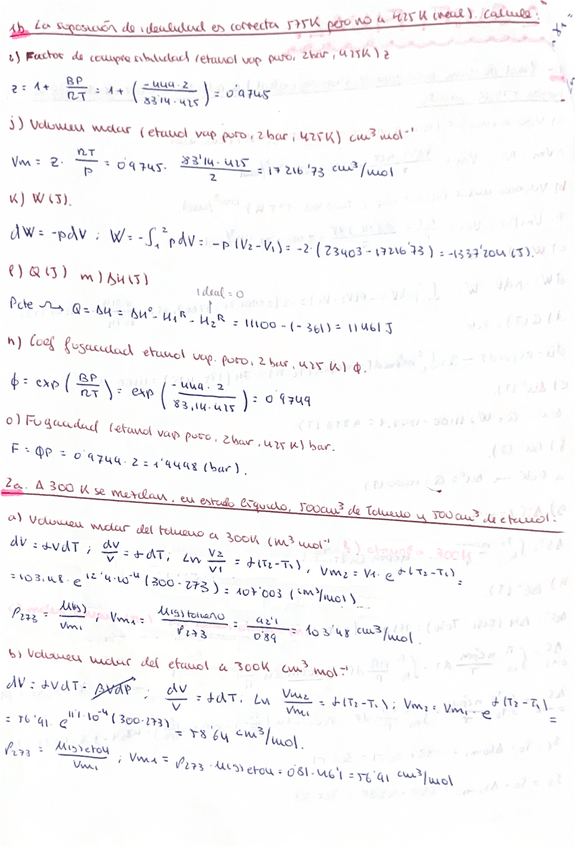 1b. La suposición de idealidad es correcta 575K pero no a 425K (real). Calcule:
i) Factor de compresibilidad (etanol vap puro, 2bar, 425K) z
z = 1 + BP/RT = 1 + (-444·2/83'14·425) = 0'9745
j) Volumen molar (etanol vap puro, 2 bar, 425K) cm³ mol⁻¹
Vm = z · RT/P = 0'9745 · 83'14·425/2 = 17216'73 cm³/mol
k) W (J).
dW = -pdV ; W = -∫₁² pdV = -p(V2-V1) = -2·(23403-17216'73) = -1337'204 (J).
l) Q (J) m) ΔH (J)
ideal = 0
Pcte ⇝ Q = ΔH = ΔH° - H1ᴿ - H2ᴿ = 11100 - (-361) = 11461 J
n) Coef fugacidad etanol vap. puro, 2 bar, 425 K) ϕ.
ϕ = exp (BP/RT) = exp (-444·2/83,14·425) = 0'9749
o) Fugacidad (etanol vap puro, 2bar, 425K) bar.
F = ϕP = 0'9744·2 = 1'9498 (bar).
2a. A 300 K se mezclan, en estado líquido, 500cm³ de Tolueno y 500cm³ de etanol:
a) Volumen molar del tolueno a 300K (m³ mol⁻¹
dV = αVdT ; dV/V = αdT, Ln V2/V1 = α(T2-T1), Vm2 = V1·e^α(T2-T1) =
= 103'48·e^12'4·10⁻⁴(300-273) = 107'003 (cm³/mol)
ρ273 = M(g)/Vm1 ; Vm1 = M(g)tolueno/ρ273 = 92'1/0'89 = 103'48 cm³/mol.
b) Volumen molar del etanol a 300K cm³ mol⁻¹
dV = αVdT - βVdP ; dV/V = αdT, Ln Vm2/Vm1 = α(T2-T1) ; Vm2 = Vm1·e^α(T2-T1) =
= 56'91·e^11'1·10⁻⁴(300-273) = 58'64 cm³/mol.
ρ273 = M(g)etOH/Vm1 ; Vm1 = ρ273·M(g)etOH = 0'81·46'1 = 56'91 cm³/mol